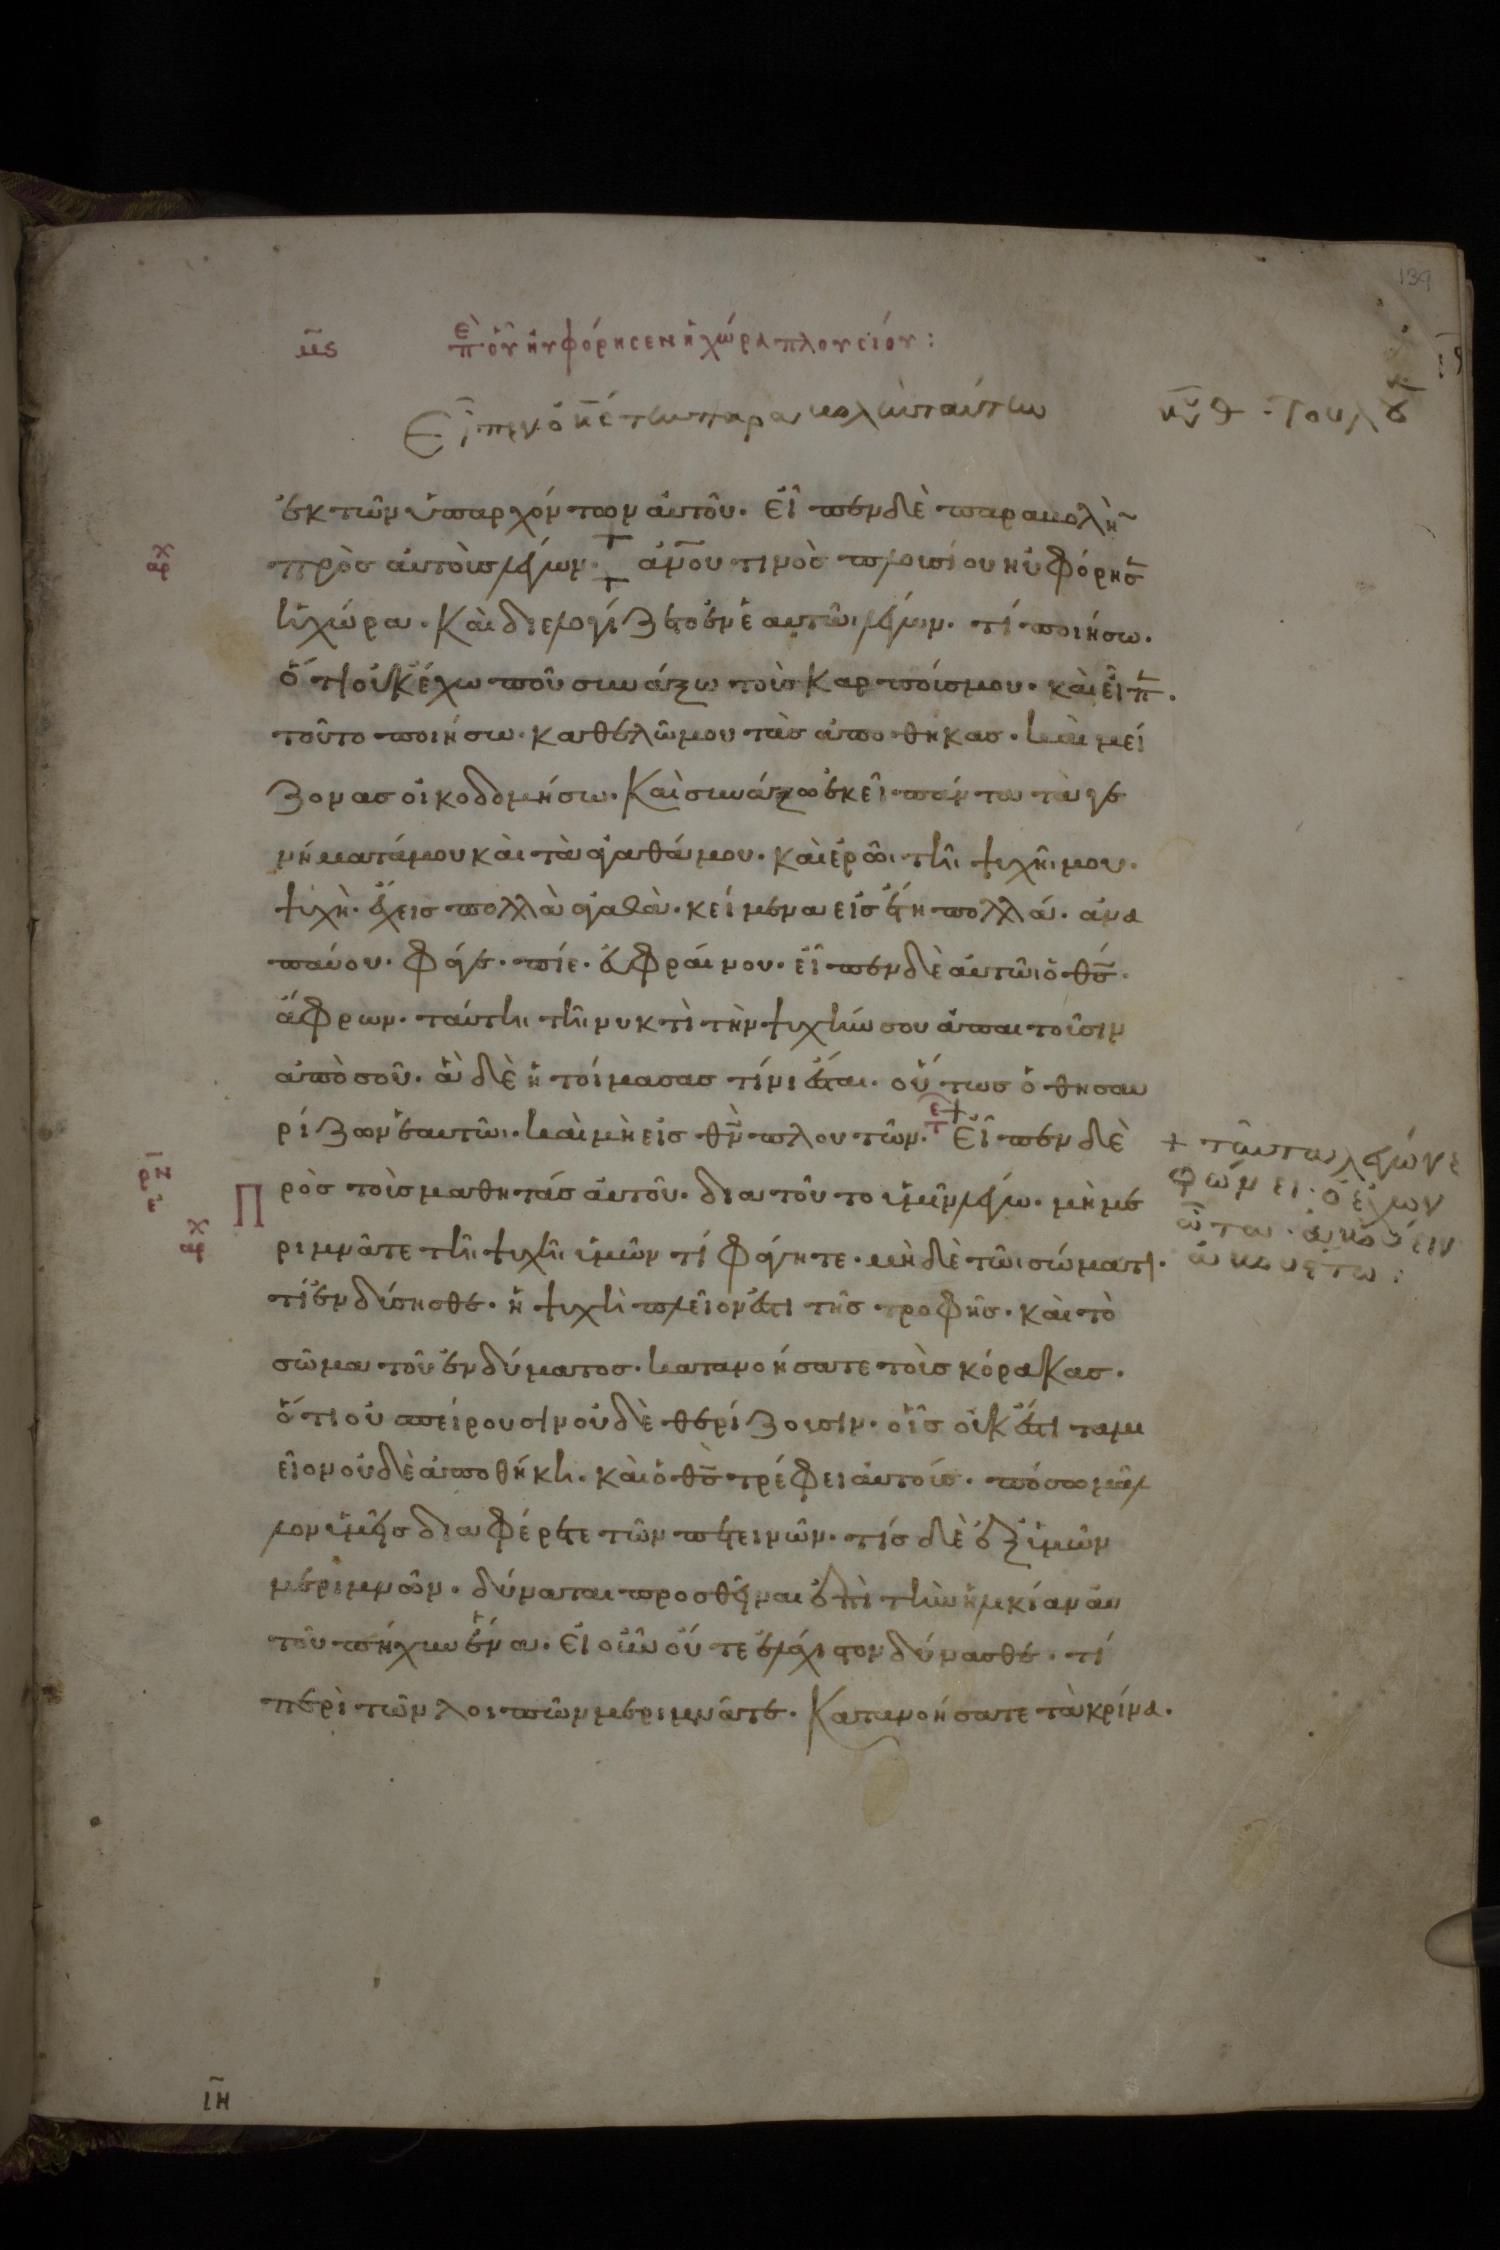 139
μ̅ς ἐπ οὗ ηὐφόρησεν ἡ χώρα πλουσίου:
Εἶπεν ὁ κ̅ς τὴν παραβολὴν ταύτην
ἐκ τῶν ὑπαρχόντων αὐτοῦ. εἶπεν δὲ παραβολὴ~
πρὸς αὐτοὺς λέγων. α̅νου τινὸς πλουσίου ηὐφόρησ̅
ἡ χώρα. Καὶ διελογίζετο ἐν ἑαυτῶι λέγων. τί ποιήσω.
ὅτι οὐκ ἔχω ποῦ συνάξω τοὺς καρπούς μου. καὶ εἶπ̅.
τοῦτο ποιήσω. καθελῶ μου τὰς ἀποθήκας. καὶ μεί
ζονας οἰκοδομήσω. Καὶ συνάξω ἐκεῖ πάντα τὰ γε
νήματά μου καὶ τὰ ἀγαθά μου. καὶ ἐρῶ τῆι ψυχῆι μου.
ψυχὴ. ἔχεις πολλὰ ἀγαθὰ. κείμενα εἰς ἔτη πολλά. ἀνα
παύου. φάγε. πίε. εὐφραίνου. εἶπεν δὲ αὐτῶι ὁ θ̅ς.
ἄφρων. ταύτηι τῆι νυκτὶ τὴν ψυχήν σου ἀπαιτοῦσιν
ἀπὸ σοῦ. ἃ δὲ ἡτοίμασας τίνι ἔσται. οὕτως ὁ θησαυ
ρίζων ἑαυτῶι. καὶ μὴ εἰς θ̅ν πλουτῶν. + Εἶπεν δὲ
πρὸς τοὺς μαθητάς αὐτοῦ. διατοῦτο ὑμῖν λέγω. μὴ με
ριμνᾶτε τῆι ψυχῆι ὑμῶν τί φάγητε. μηδὲ τῶι σώματι.
τί ἐνδύσησθε. ἡ ψυχὴ πλεῖον ἐστι τῆς τροφῆς. καὶ τὸ
σῶμα τοῦ ἐνδύματος. κατανοήσατε τοὺς κόρακας.
ὅτι οὐ σπείρουσιν οὐδὲ θερίζουσιν. οἷς οὐκ ἔστι ταμι
εῖον οὐδὲ ἀποθήκη. καὶ ὁ θ̅ς τρέφει αὐτούς. πόσω μᾶλ
λον ὑμεῖς διαφέρετε τῶν πετεινῶν. τίς δὲ ἐξ ὑμῶν
μεριμνῶν. δύναται προσθεῖναι ἐπὶ τὴν ἡλικίαν αὐ
τοῦ πῆχυν ἕνα. εἰ οὖν οὔτε ἐλάχιστον δύνασθε. τί
περὶ τῶν λοιπῶν μεριμνᾶτε. Κατανοήσατε τὰ κρίνα.
+ ταῦτα λέγων ἐ
φώνει. ὁ ἔχων
ὦτα ἀκούειν
ἀκουέτω:
ι̅η